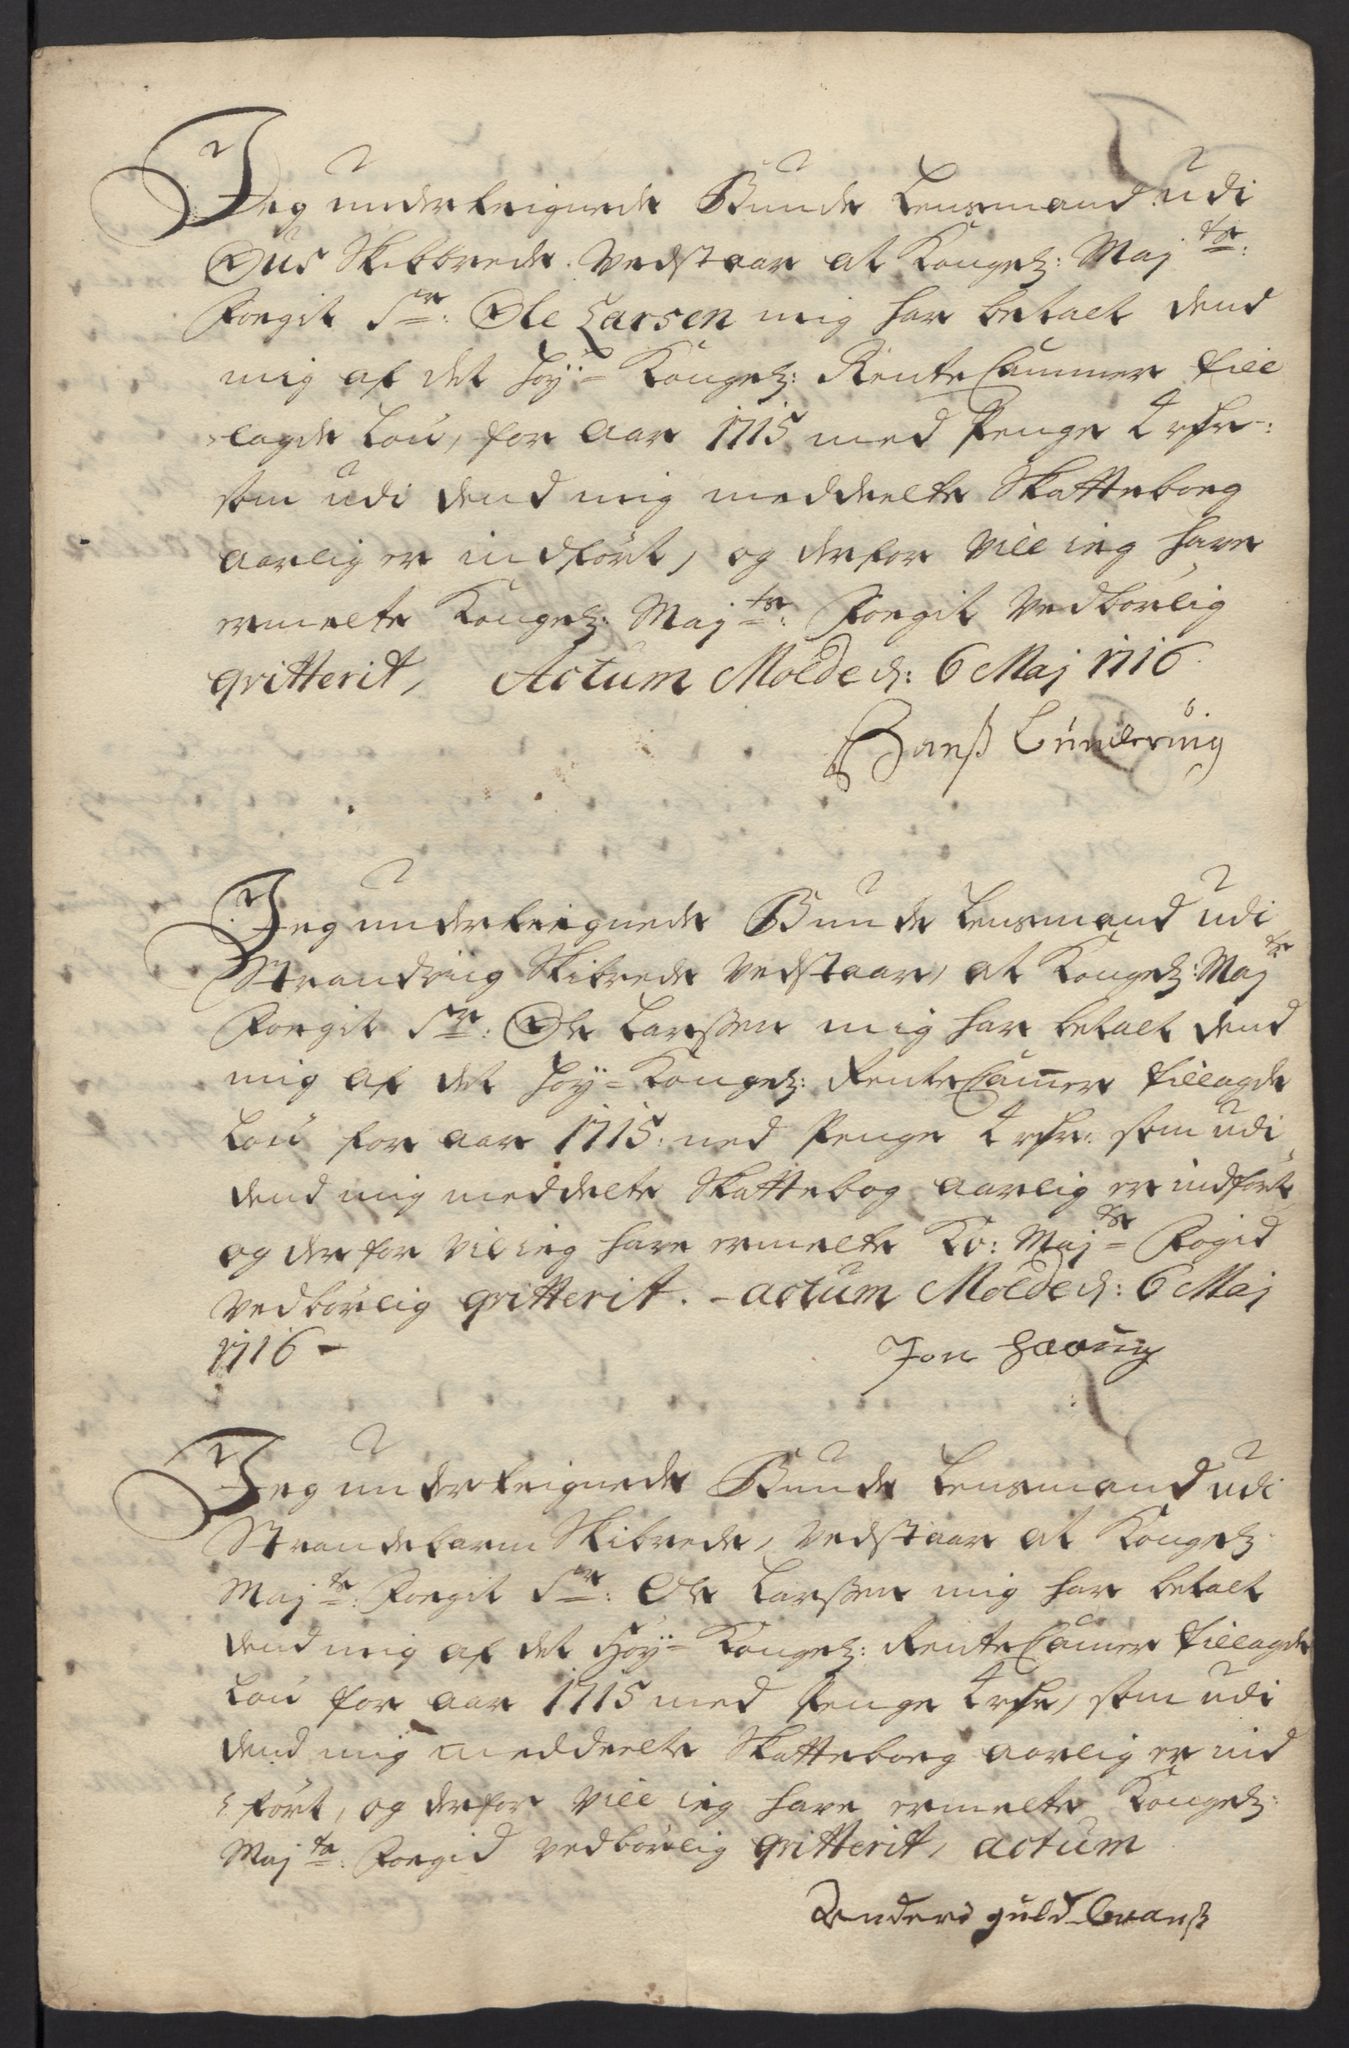 Jeg underteignede Bunde Lensmand udi
Ous Skibbrede. Vedstaar at Kongel: Maj.ts:
Foegit Sr: Ole Larsen mig har betalt dend
mig af det høy= Kongel: Rente Cammer till
lagde Løn, for Aar 1715 med Penge 4 rdr:
som udi dend mig meddeelte Skatteboeg
aarlig er indført, og derfor Vill ieg have
ermelte Kongel: Majts: Foegit Vedbørlig
qvitterit, Actum Molde d: 6 Maj 1716.
Hanß
Jeg underteignede Bunde Lensmand udi
Strandvig Skibrede Vedstaar, at Kongel: Majts
Foegit Sr: Ole Larssen mig har betalt dend
mig af det høy= Kongel: Rente Camer tillagde
Løn for aar 1715: med Penge 4 rdr: som udi
dend mig meddelte Skattebog aarlig er indført,
og derfor vil ieg have ermelte Ko: Majts Fogid
Vedbørlig qvitterit. - actum Molde d: 6 Maj
1716 -
Jon
Jeg underteignede Bunde Lensmand udi
Strandebarm Skibrede, Vedstaar at Kongel:
Majts: Foegit Sr: Ole Larssen mig har betalt
dend mig af det Høy= Kongel: Rente Camer tillagde
Løn for aar 1715 med Penge 4 rdr, som udi
dend mig meddeelte Skatteboeg aarlig er ind
ført, og derfor Vill ieg have ermelte Kongel:
Majts: Foegid vedbørlig qvitterit, actum
Anders guldbranß